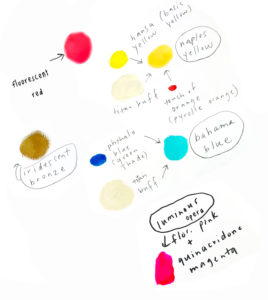 hansa (basic
yellow)
yellow
naples
yellow
fluorescent
red
titan buff
touch of
orange
(pyrrole orange)
iridescent
bronze
phthalo
blue
(green
shade)
bahama
blue
titan
buff
luminous
opera
flor. pink
+
quinacridone
magenta